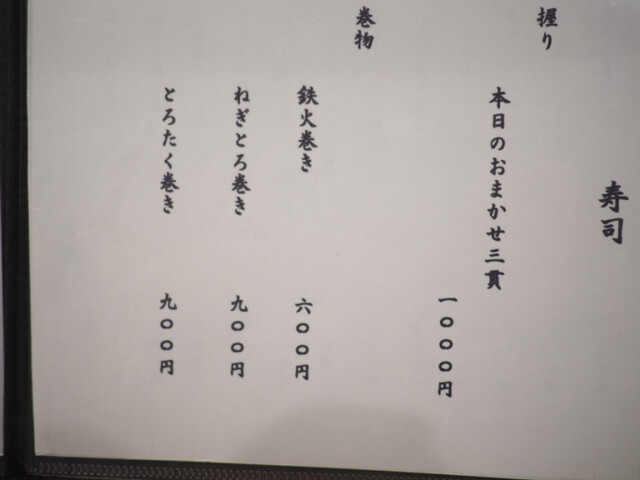 寿司
握り
本日のおまかせ三貫
一〇〇〇円
巻物
鉄火巻き
六〇〇円
ねぎとろ巻き
九〇〇円
とろたく巻き
九〇〇円